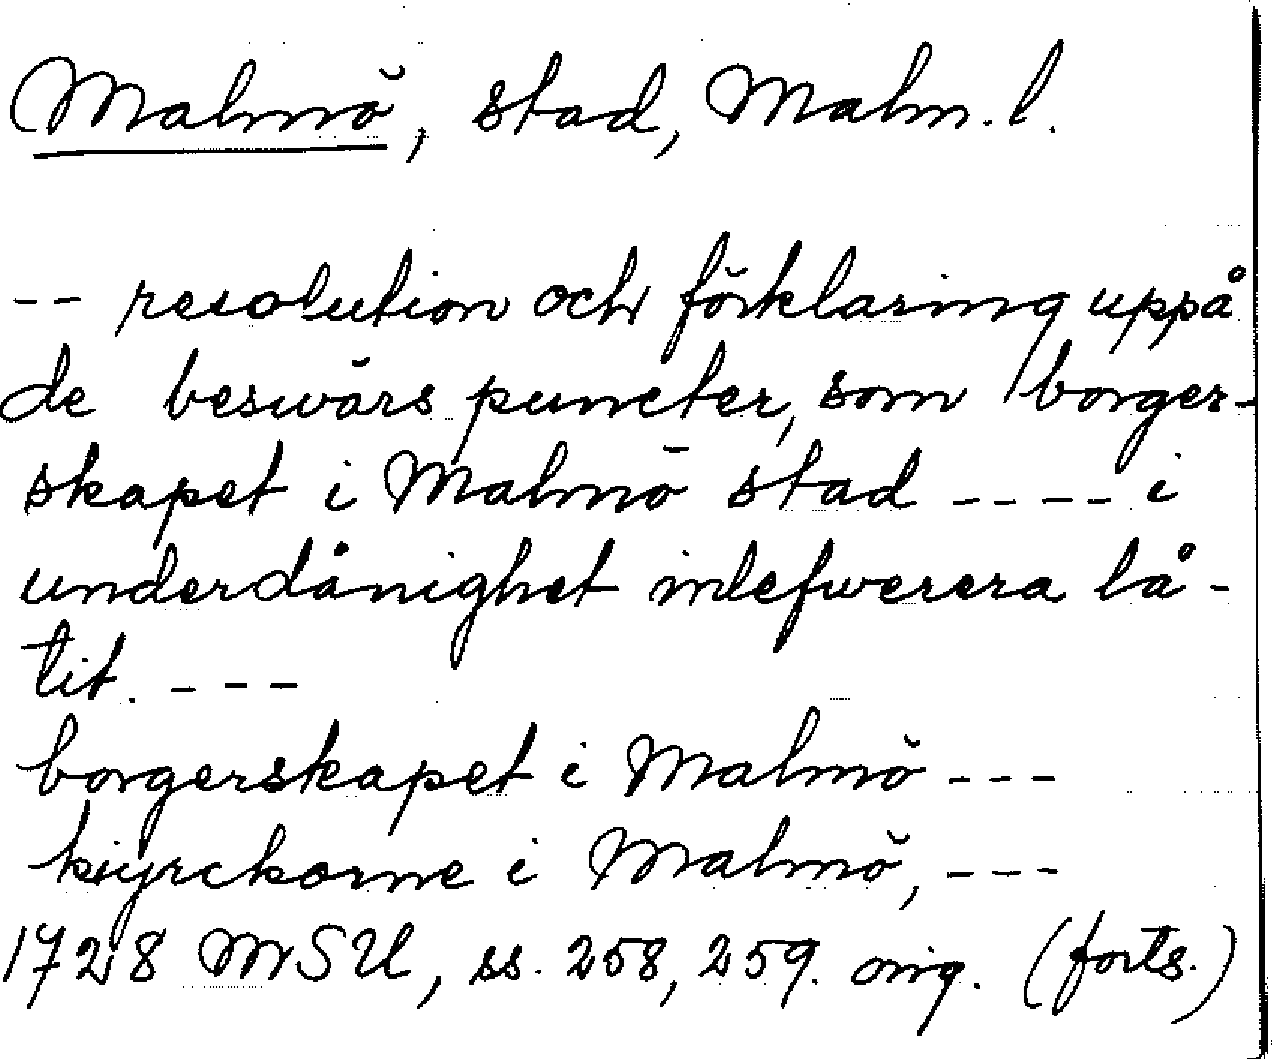 Malmö, stad, Malm. l.
-- resolution och förklaring uppå
de beswärs puncter, som borger-
skapet i Malmö stad ---- i
underdånighet inlefwerera lå-
tit. ---
borgerskapet i Malmö ---
kiyrckorne i Malmö, ---
1728 MSU, ss. 258, 259. orig. (forts.)